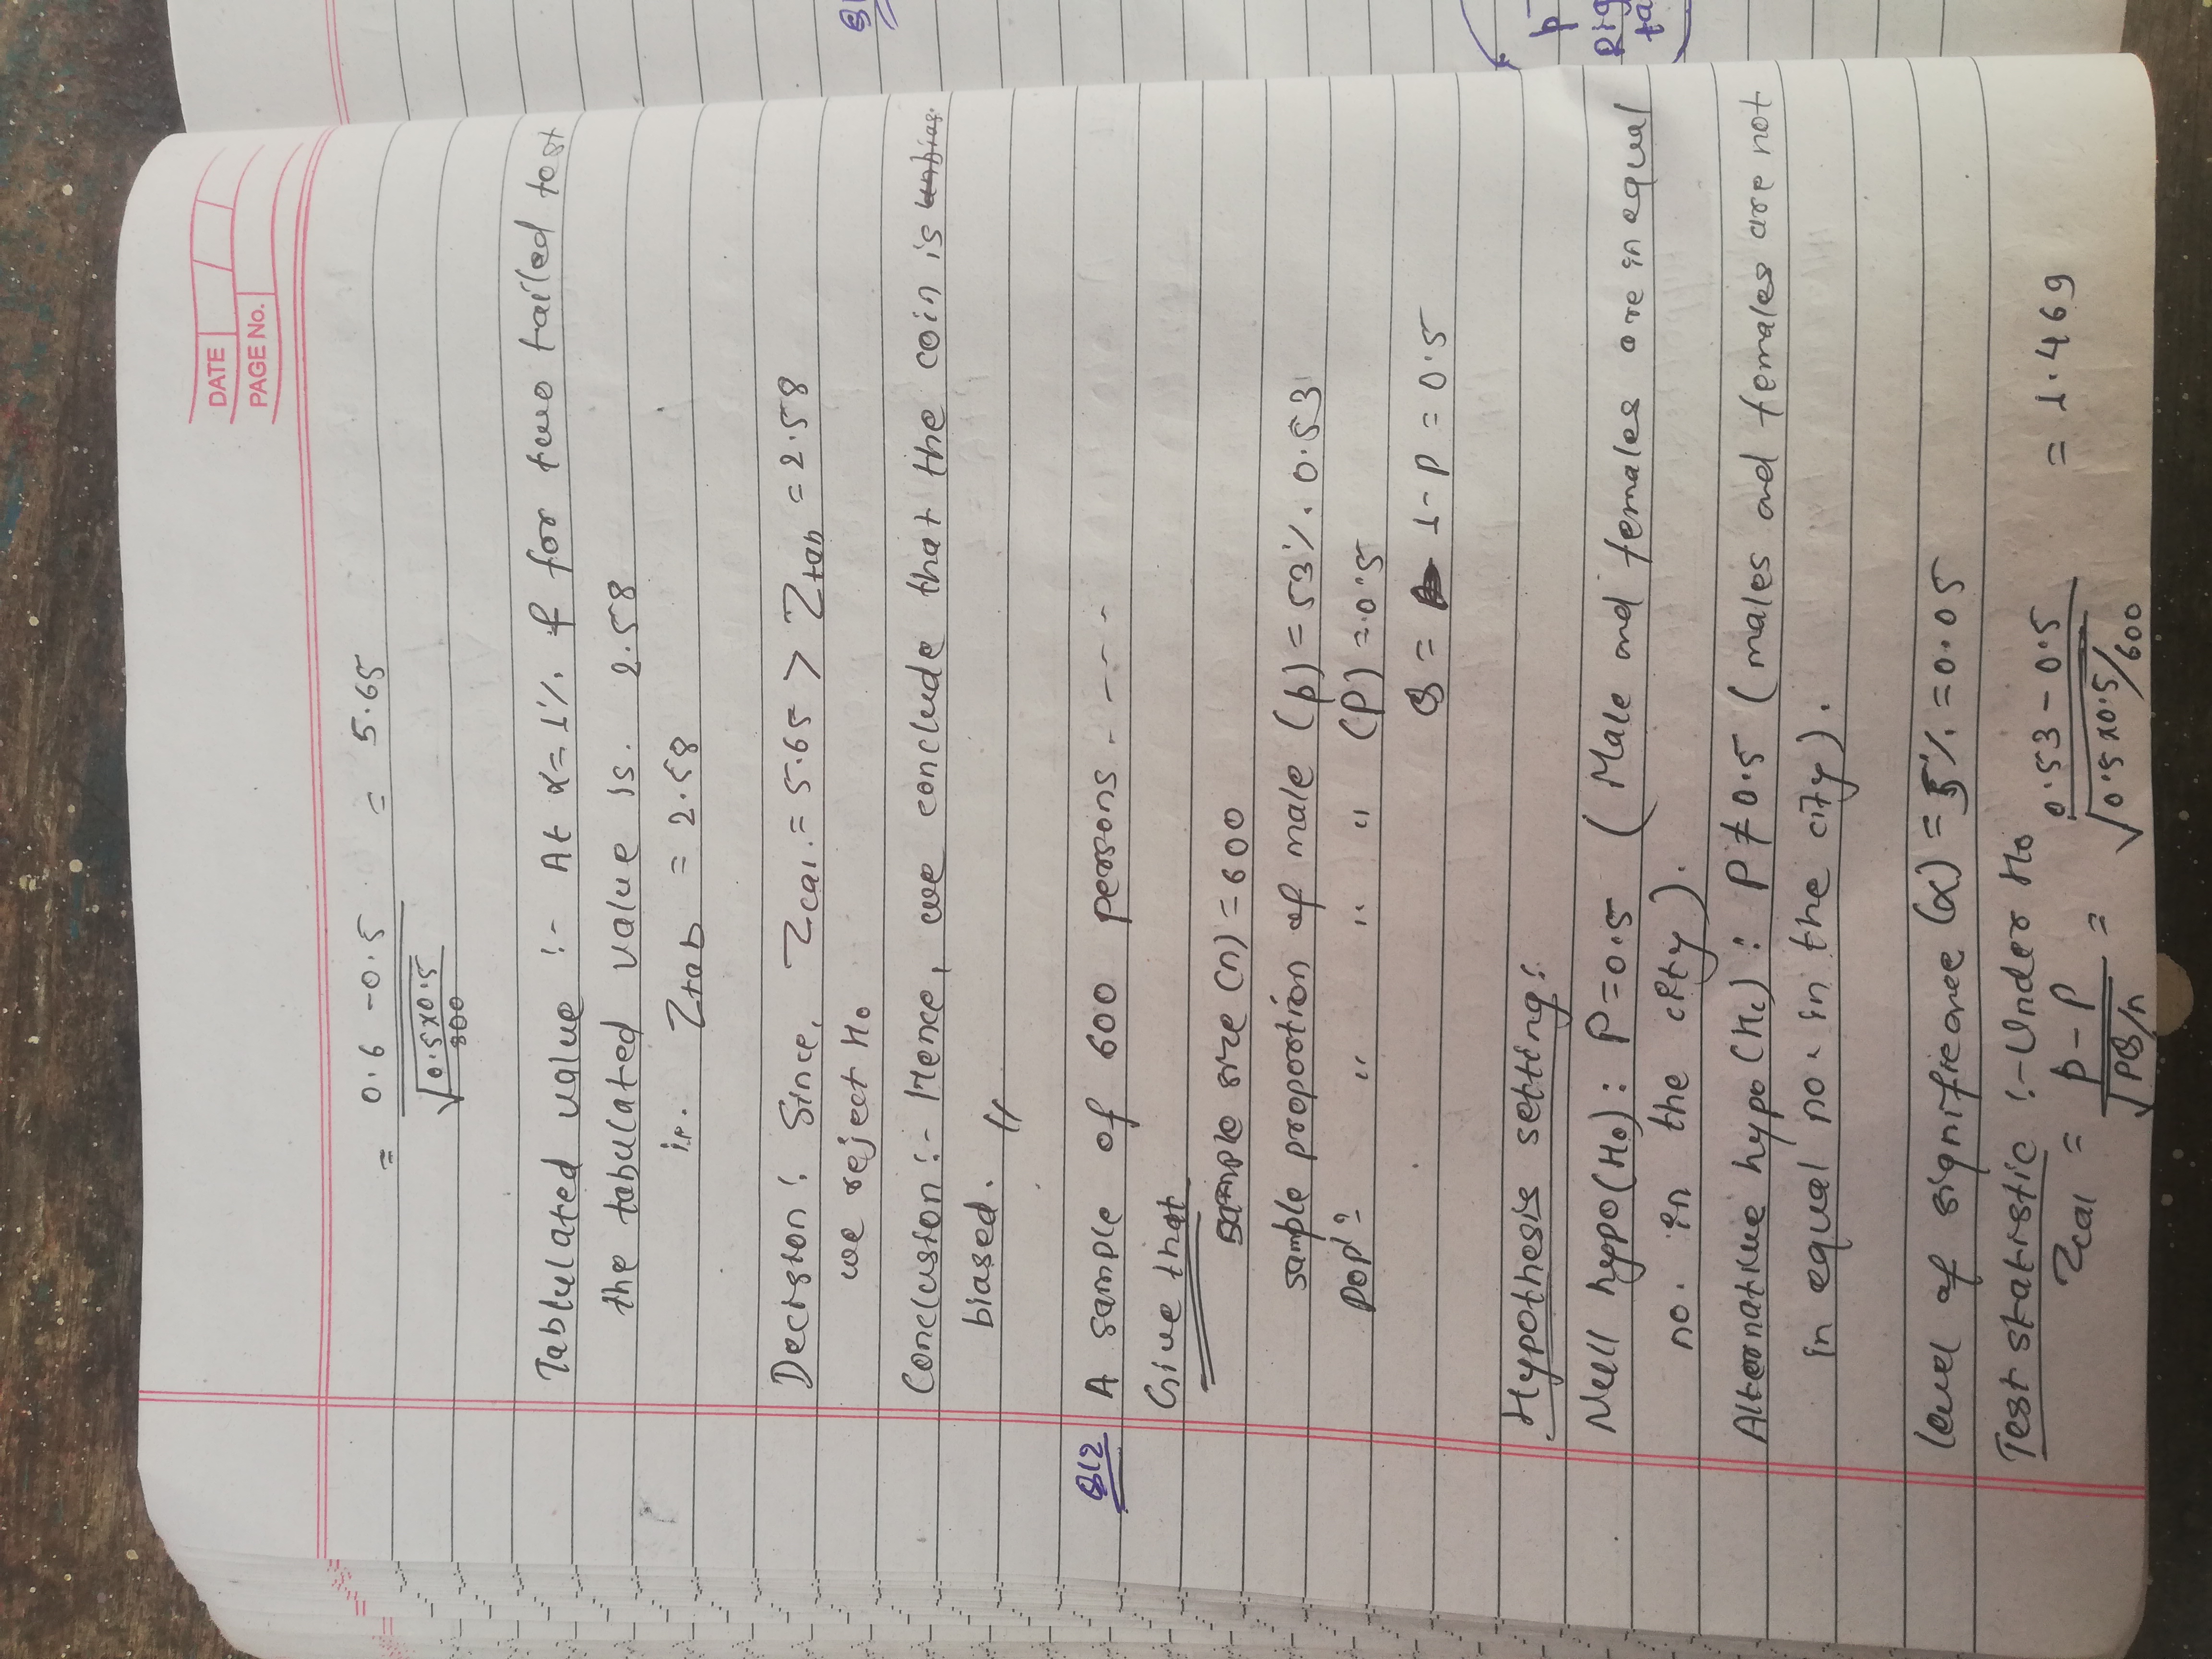 DATE
PAGE No.
= 0.6 - 0.5 = 5.65
√0.5x0.5
800
Tablulated value :- At α=1% & for two tailed test
the tabulated value is. 2.58
ie. Ztab = 2.58
Decision: Since, Zcal. = 5.65 > Ztab = 2.58
we reject H0
Conclusion :- Hence, we conclude that the coin is
biased. //
Q12 A sample of 600 persons. - - - -
Give that
sample size (n) = 600
sample proportion of male (p) = 53%. 0.53
popn " " " (P) = 0.5
Q = 1-P = 0.5
Hypothesis setting:
Null hypo(H0): P=0.5 (Male and females are in equal
no. in the city).
Alternative hypo (H1): P≠0.5 (males and females are not
in equal no. in the city).
level of significance (α) = 5% = 0.05
Test statistic :- Under H0
Zcal = p-P = 0.53 - 0.5 = 1.469
√PQ/n √0.5x0.5/600